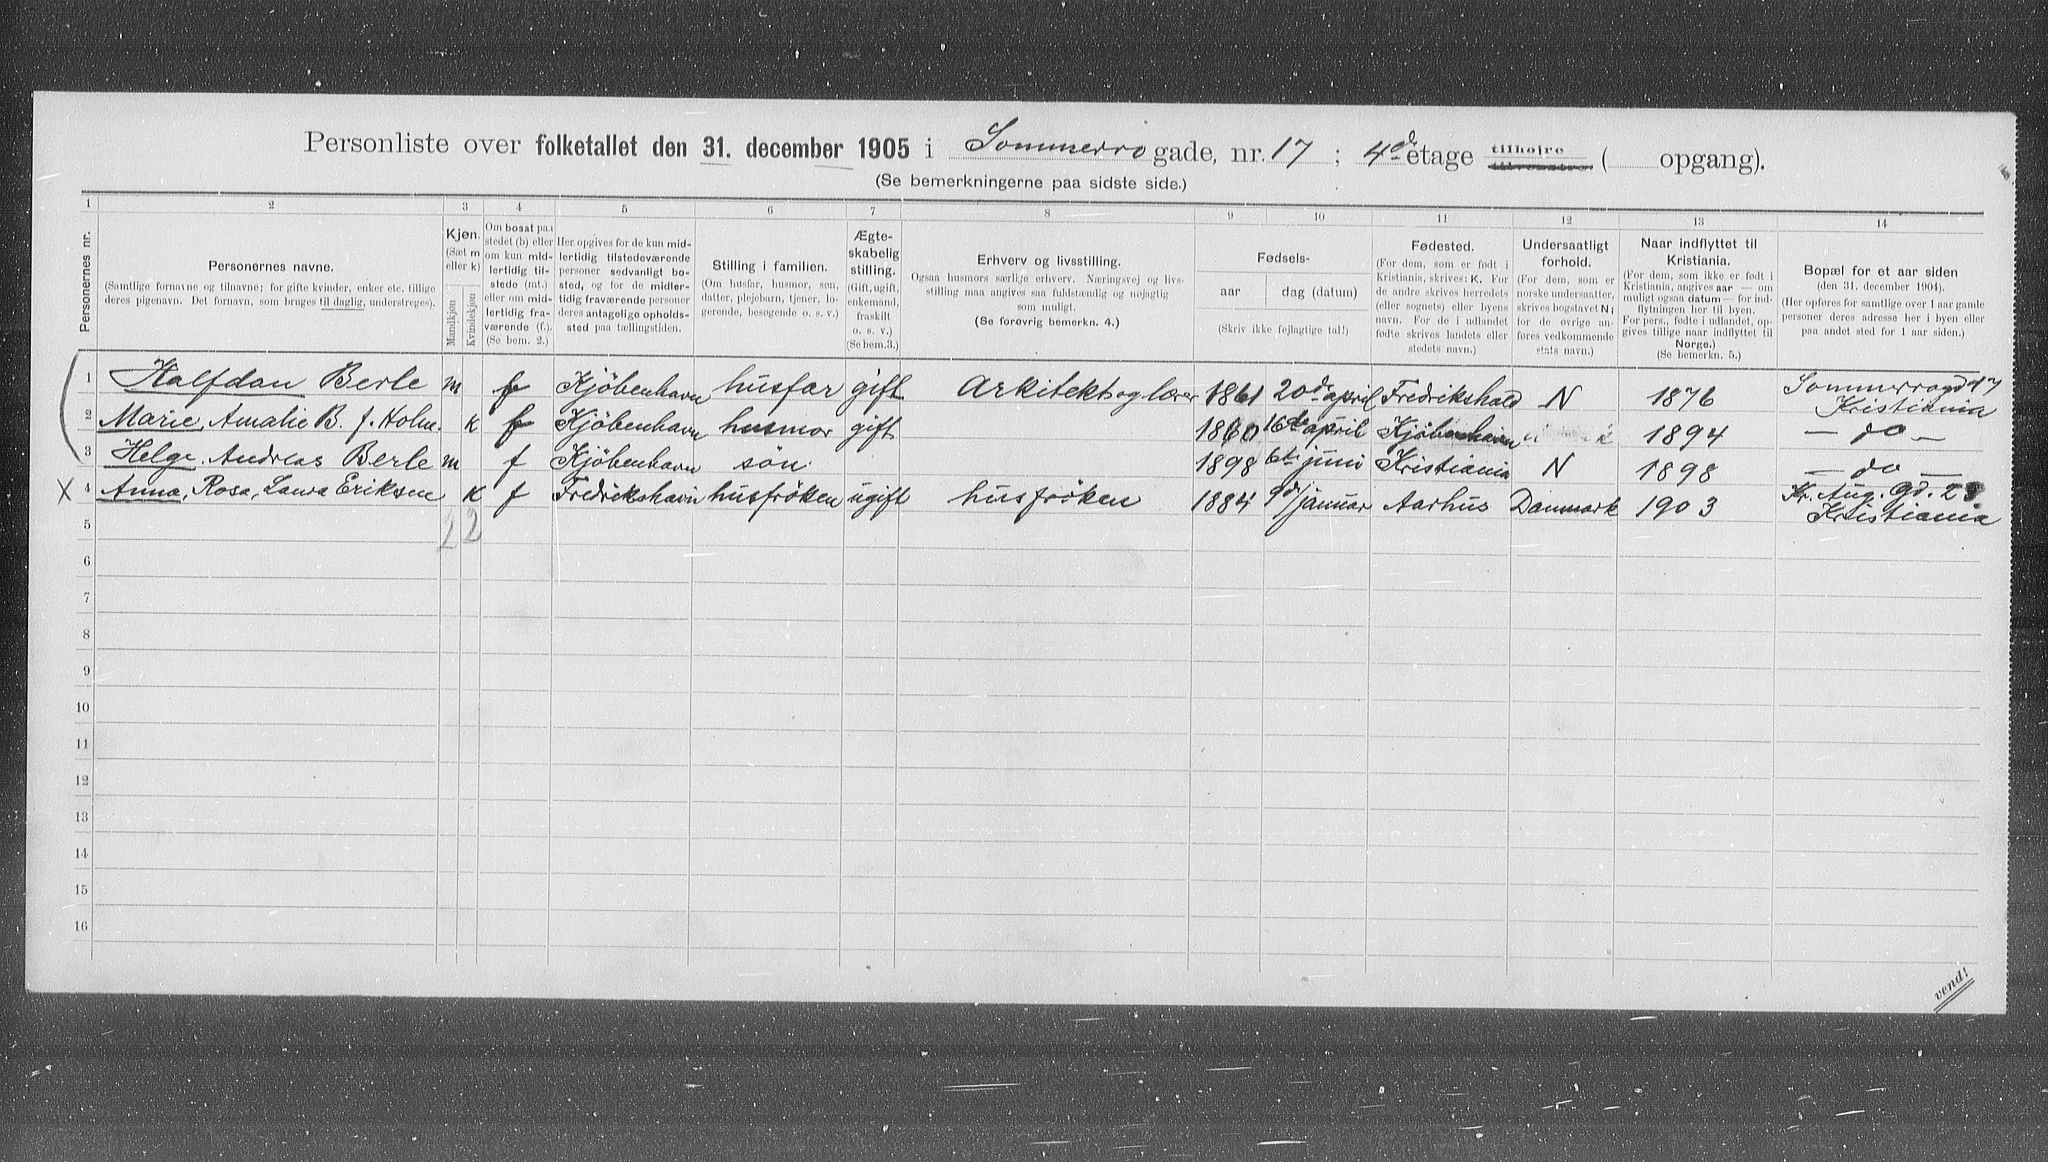 Personliste over folketallet den 31. december 1905 i Sommerro gade, nr. 17 ; 4de etage tilhøjre tilvenstre ( opgang).
(Se bemerkningerne paa sidste side.)
1 2 3 4 5 6 7 8 9 10 11 12 13 14
Personernes nr.
Personernes navne.
(Samtlige fornavne og tilnavne; for gifte kvinder, enker etc. tillige
deres pigenavn. Det fornavn, som bruges til daglig, understreges).
Kjøn.
(Sæt m
eller k)
Mandkjøn
Kvindekjøn
Om bosat paa
stedet (b) eller
om kun mid-
lertidig til-
stede (mt.)
eller om mid-
lertidig fra-
værende (f.).
(Se bem. 2.)
Her opgives for de kun mid-
lertidig tilstedeværende
personer sedvanligt bo-
sted, og for de midler-
tidig fraværende personer
deres antagelige opholds-
sted paa tællingstiden.
Stilling i familien.
(Om husfar, husmor, søn,
datter, plejebarn, tjener, lo-
gerende, besøgende o. s. v.)
Ægte-
skabelig
stilling.
(Gift, ugift,
enkemand,
fraskilt
o. s. v.)
(Se bem.3.)
Erhverv og livsstilling.
Ogsaa husmors særlige erhverv. Næringsvej og livs-
stilling maa angives saa fuldstændig og nøjagtig
som muligt.
(Se forøvrig bemerkn. 4.)
Fødsels-
aar
dag (datum)
(Skriv ikke fejlagtige tal!)
Fødested.
(For dem, som er født i
Kristiania, skrives: K. For
de andre skrives herredets
(eller sognets) eller byens
navn. For de i udlandet
fødte skrives landets eller
stedets navn.)
Undersaatligt
forhold.
(For dem, som er
norske undersaatter,
skrives bogstavet N;
for de øvrige an-
føres vedkommende
stats navn.)
Naar indflyttet til
Kristiania.
(For dem, som ikke er født i
Kristiania, angives aar — om
muligt ogsaa datum — for ind-
flytningen her til byen.
For pers., fødte i udlandet, op-
gives tillige naar indflyttet til
Norge.)
(Se bemerkn. 5.)
Bopæl for et aar siden
(den 31. december 1904).
(Her opføres for samtlige over 1 aar gamle
personer deres adresse her i byen eller
paa andet sted for 1 aar siden.)
1 Halfdan Berle m f Kjöbenhavn husfar gift Arkitekt og lærer 1861 20de april Fredrikshald N 1876 Sommerrogd 17 Kristiania
2 Marie, Amalie B. f. Holm. k f Kjöbenhavn husmor gift 1860 16de april Kjöbenhavn 1894 — do —
3 Helge, Andreas Berle m f Kjöbenhavn søn 1898 6te juni Kristiania N 1898 — do —
X 4 Anna, Rosa, Laura Eriksen k f Fredrikshavn husfröken ugift husfröken 1884 9de januar Aarhus Danmark 1903 Kr. Aug. Gd. 28 Kristiania
5 22
6
7
8
9
10
11
12
13
14
15
16
vend!